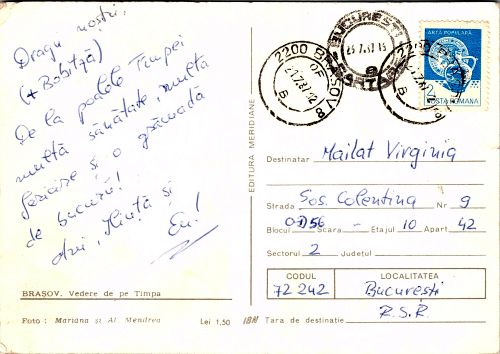 Dragii noștri,
(+ Bobiță)
De la poalele Tîmpei
multă sănătate, multă
fericire și o grămadă
de bucurii!
dvi, Nuță și
Eu!
BRAȘOV. Vedere de pe Tîmpa
Foto : Mariana și Al. Mendrea Lei 1,50
EDITURA MERIDIANE
2200 BRAȘOV 8
BUCUREȘTI
9
2200 BRAȘOV 8
ARTĂ POPULARĂ
POSTA ROMANA
Destinatar Mailat Virginia
Strada Sos. Colentina Nr 9
Blocul OD56 Scara - Etajul 10 Apart 42
Sectorul 2 Județul
CODUL LOCALITATEA
72 242 București
Tara de destinație R.S.R.